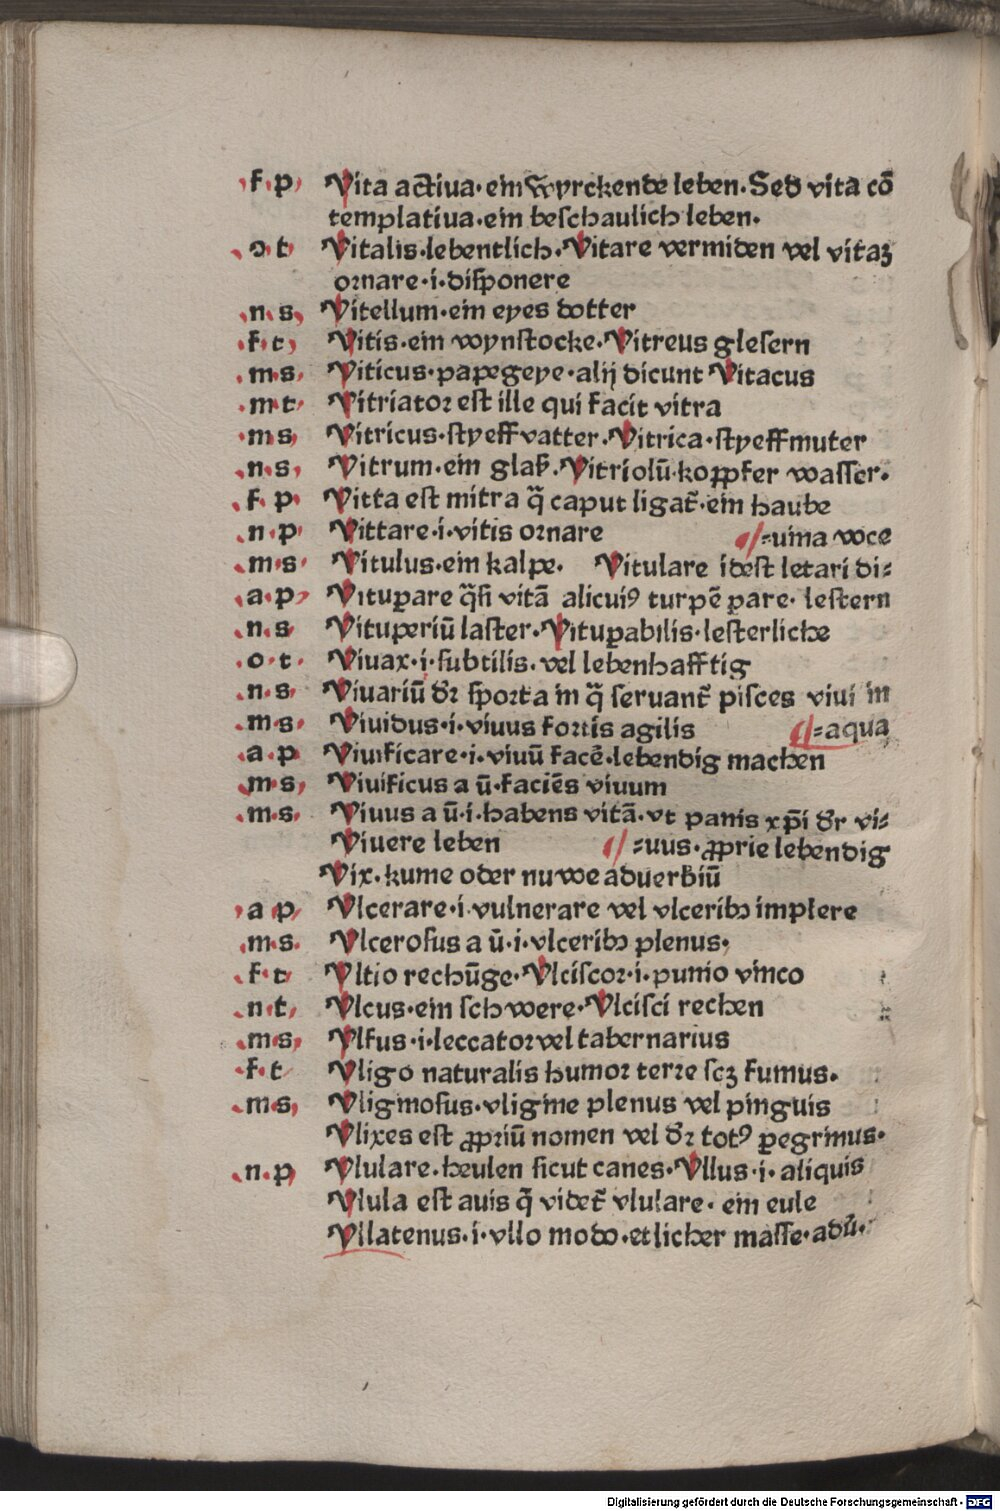 f p Vita actiua·ein wyrckende leben·Sed vita cō
templatiua·ein beschaulich leben·
o t Vitalis·lebentlich·Vitare vermiden vel vitaꝫ
ornare·i·disponere
n s Vitellum·ein eyes dotter
f t Vitis·ein wynstocke·Vitreus glesern
m s Viticus·papegeye·alij dicunt Vitacus
m t Vitriator est ille qui facit vitra
m s Vitricus·styeffvatter·Vitrica·styeffmuter
n s Vitrum·ein glaß·Vitriolū·kopfer wasser·
f p Vitta est mitra q̄ caput ligat᷑·ein haube
n p Vittare·i·vitis ornare ⸗uina voce
m s Vitulus·ein kalpe· Vitulare idest letari di⸗
a p Vituꝑare q̄si vitā alicuiꝰ turpē ꝑare·lestern
n s Vituperiū laster·Vituꝑabilis·lesterliche
o t Viuax·i·subtilis·vel lebenhafftig
n s Viuariū dr̄ sporta in q̄ seruant᷑ pisces viui in
m s Viuidus·i·viuus fortis agilis ⸗aqua
a p Viuificare·i·viuū facē·lebendig machen
m s Viuificus a ū·faciēs viuum
m s Viuus a ū·i·habens vitā·vt panis xp̄i dr̄ vi⸗
Viuere leben ⸗uus·ꝓprie lebendig
Vix·kume oder nuwe aduerbiū
a p Vlcerare·i·vulnerare vel vlceribꝫ implere
m s Vlcerosus a ū·i·vlceribꝫ plenus·
f t Vltio rechūge·Vlciscor·i·punio vinco
n t Vlcus·ein schwere·Vlcisci rechen
m s Vlfus·i·leccator vel tabernarius
f t Vligo naturalis humor terre scꝫ fumus·
m s Vliginosus·vligine plenus vel pinguis
Vlixes est ꝓpriū nomen vel dr̄ totꝰ ꝑegrinus·
n p Vlulare·heulen sicut canes·Vllus·i·aliquis
Vlula est auis q̄ videt᷑ vlulare·ein eule
Vllatenus·i·vllo modo·etlicher masse·adū·
Digitalisierung gefördert durch die Deutsche Forschungsgemeinschaft - DFG